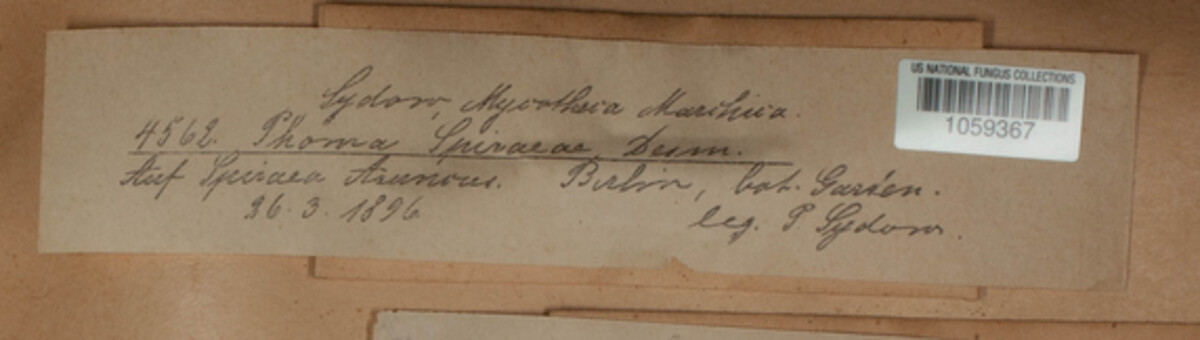 Sydow, Mycotheca Marchica.
4562. Phoma Spiraeae Desm.
Auf Spiraea Aruncus. Berlin, bot. Garten.
26. 3. 1896
leg. P. Sydow.
US NATIONAL FUNGUS COLLECTIONS
1059367